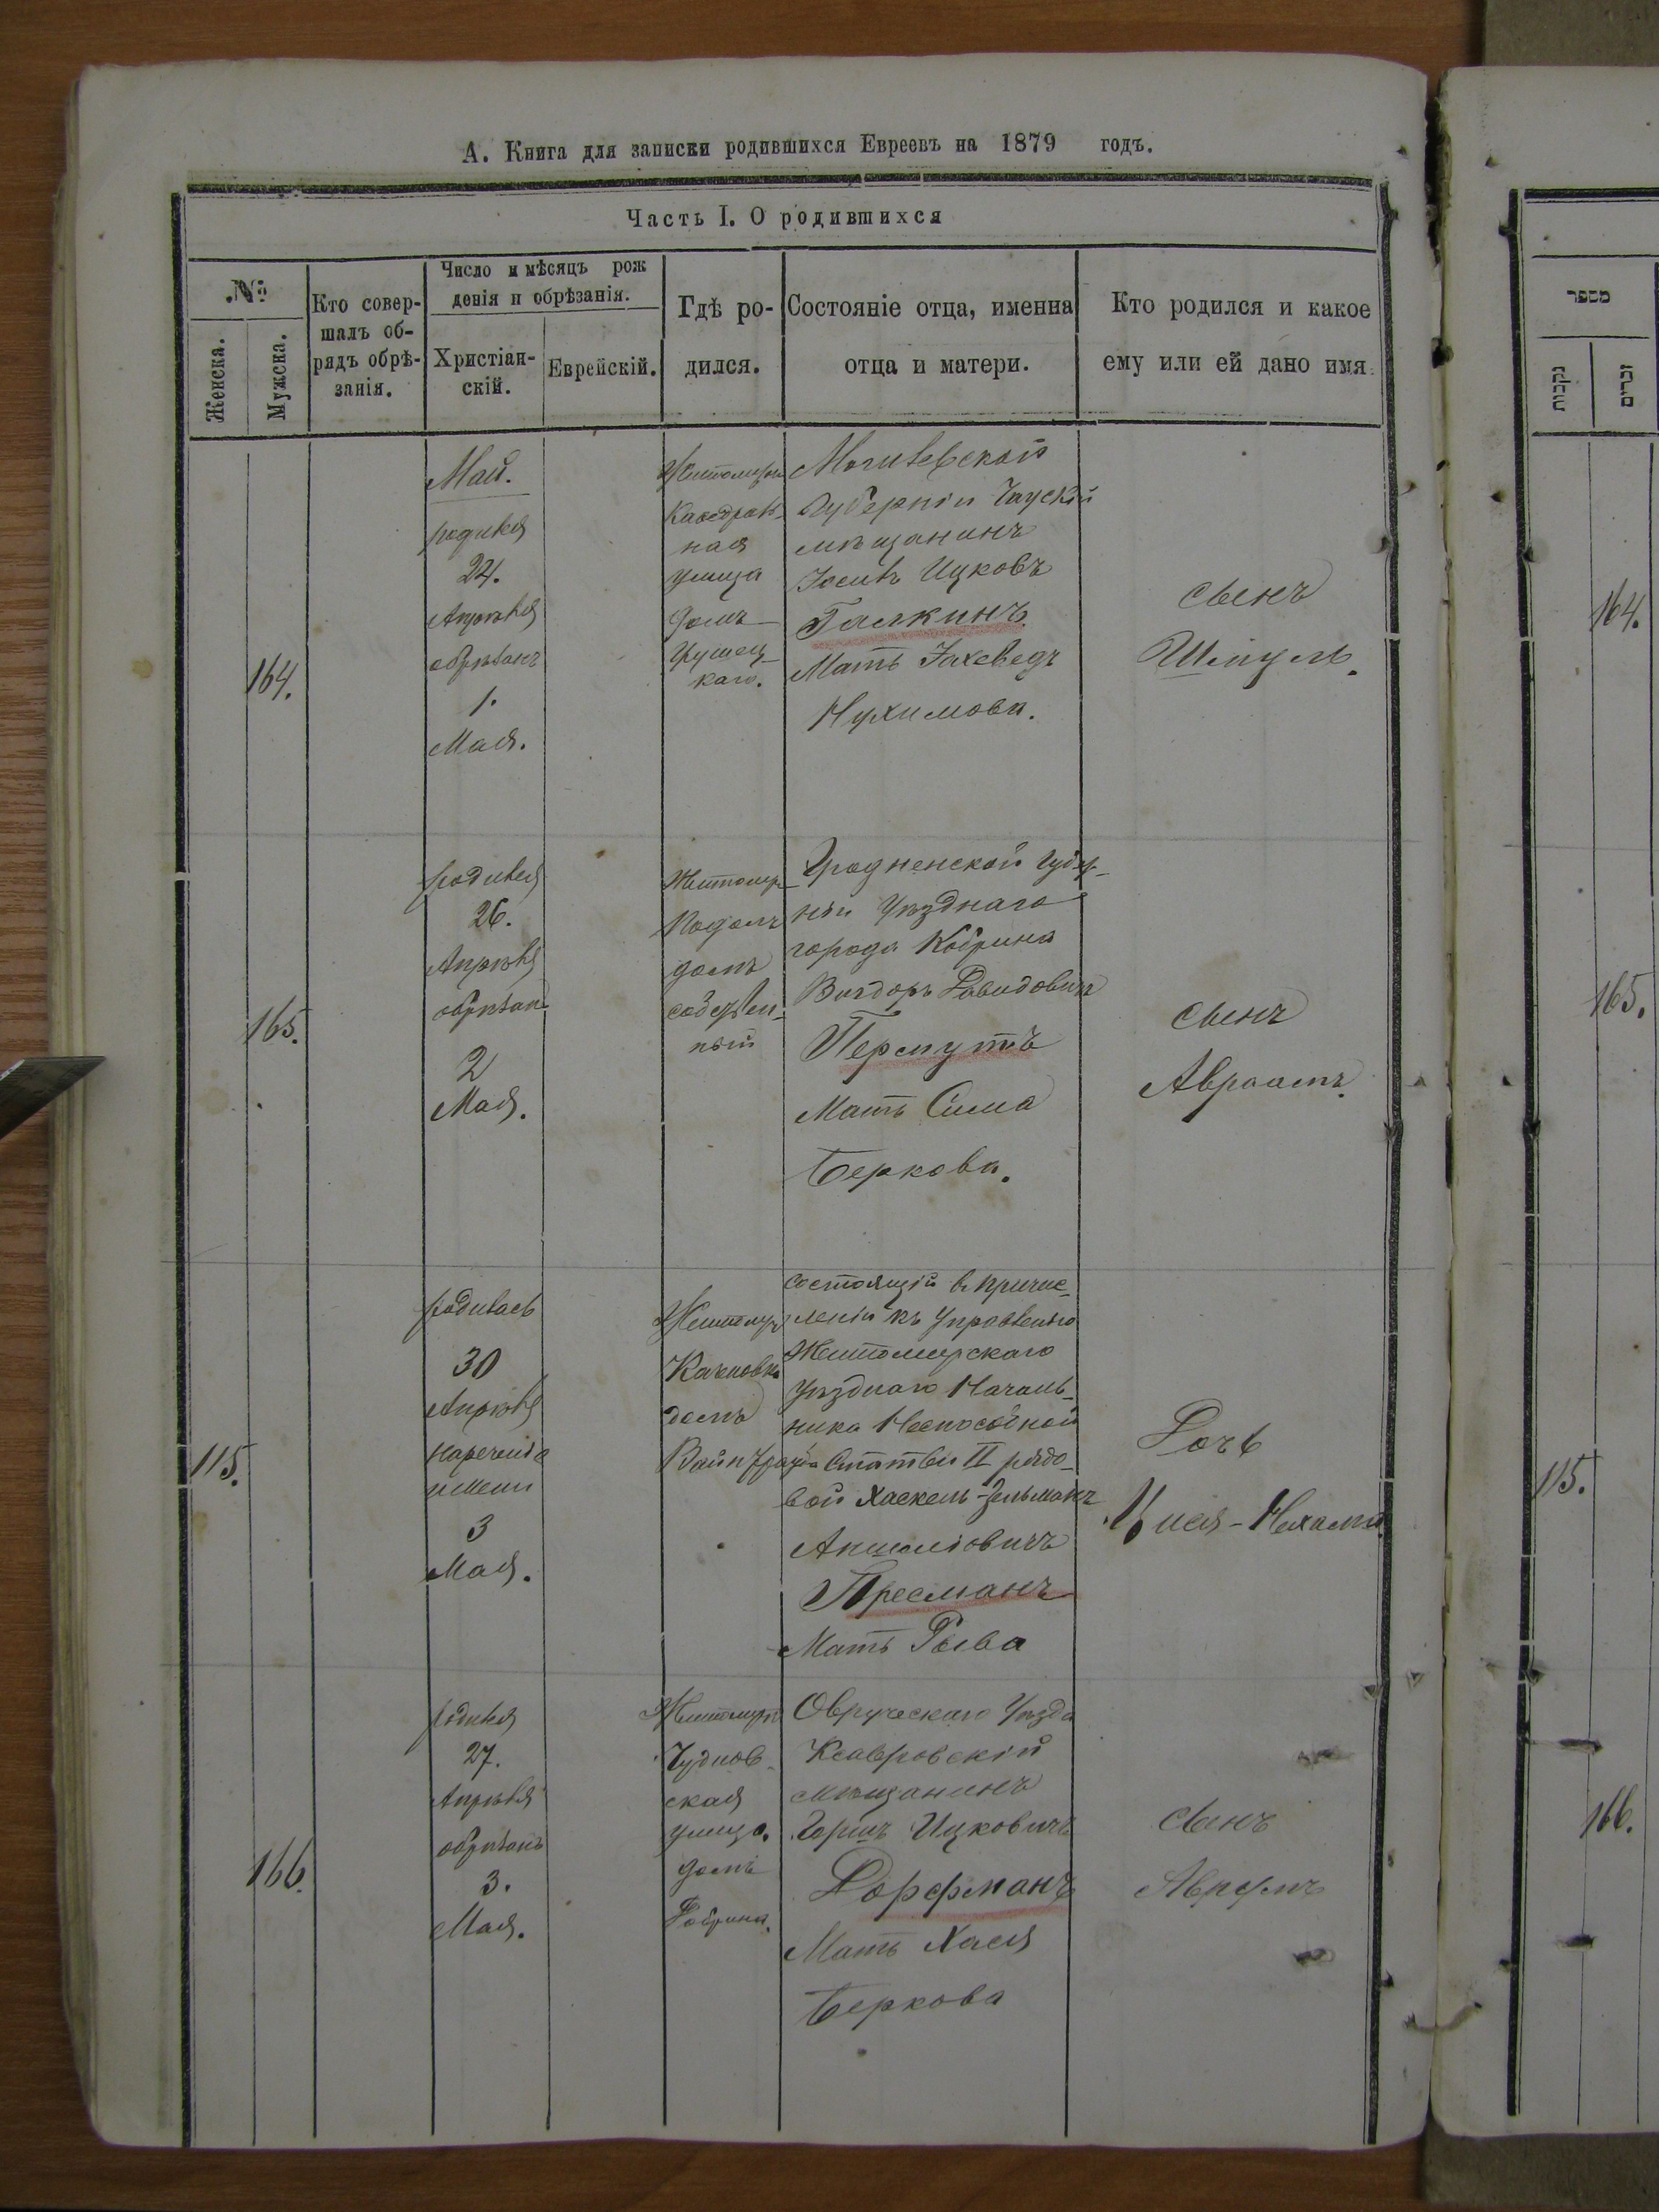 А. Книга для записки родившихся Евреевъ на 1879 годъ.
Часть I. О родившихся
№
Женска.
Мужска.
Кто совер-
шалъ об-
рядъ обрѣ-
занія.
Число и мѣсяцъ рож
денія и обрѣзанія.
Христіан-
скій.
Еврейскій.
Гдѣ ро-
дился.
Состояніе отца, именна
отца и матери.
Кто родился и какое
ему или ей дано имя.
164.
Май.
родился
24.
Апрѣля
обрѣзанъ
1.
Мая.
Житомиръ
Каѳедраль-
ная
улица
домъ
Грушец-
каго.
Могилевской
Губерніи Чаускій
мѣщанинъ
Іосифъ Ицковъ
Галкинъ
Мать Іохеведъ
Нухимова.
сынъ
Шмуль.
165.
родился
26.
Апрѣля
обрѣзанъ
2
Мая.
Житомиръ
Подолъ
домъ
собствен-
ный
Гродненской Губер-
ніи Уѣзднаго
города Кобрина
Вигдоръ Давидовичъ
Пермутъ
Мать Сима
Беркова.
сынъ
Авраамъ.
115.
родилась
30
Апрѣля
нареченіе
имени
3
Мая.
Житомиръ
домъ
состоящій в причис-
леніи къ Управленію
Житомирскаго
уѣзднаго Началь-
ника Неспособной
Статьи II рядо-
вой Хаскель-Зельманъ
Аншеліовичъ
Пресманъ
Мать Рыва
Дочь
166.
родился
27.
Апрѣля
обрѣзанъ
3.
Мая.
Житомиръ
Чуднов-
ская
улица.
домъ
Овручскаго Уѣзда
Ксаверовскій
мѣщанинъ
Гершъ Ицковичъ
Дорфманъ
Мать Хася
Беркова
сынъ
Аврумъ
מספר
נקבות
זכרים
164.
165.
115.
166.